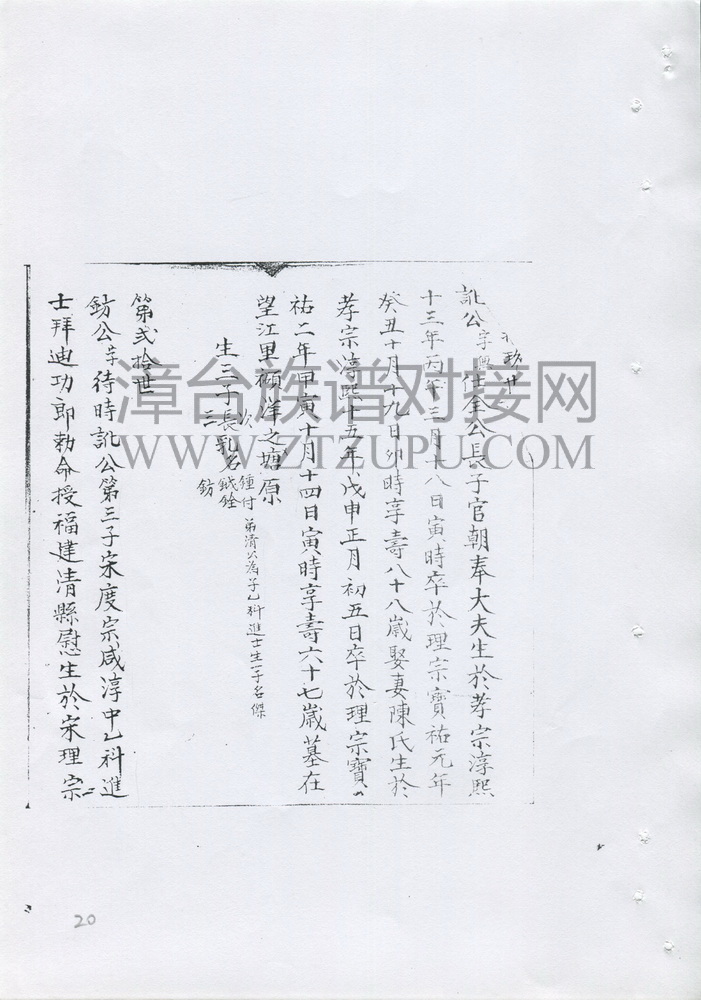 訛公字興仕全公長子官朝奉大夫生於孝宗淳熙
十三年丙午三月十八日寅時卒於理宗寶祐元年
癸丑十月十九日卯時享壽八十八歲娶妻陳氏生於
孝宗淳熙十五年戊申正月初五日卒於理宗寶
祐二年甲寅十月十四日寅時享壽六十七歲墓在
望江里 洋之塘原
生三子長乳名鉞 次鍾付弟清公為子乙科進士生一子名傑 三鈁
第弍拾世
鈁公字待時訛公第三子宋度宗咸淳中乙科進
士拜迪功郎勅命授福建清縣慰生於宋理宗
漳台族谱对接网
WWW.ZTZUPU.COM
20